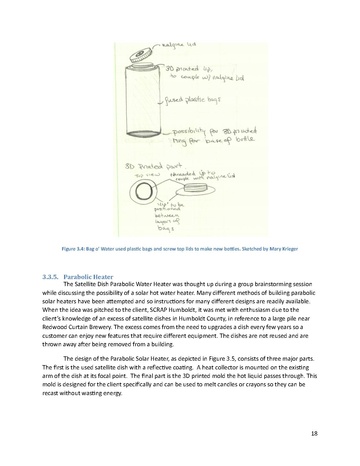 nalgine lid
3D printed lip
to couple w/ nalgine lid
fused plastic bags
possibility for 3D printed
ring for base of bottle
3D Printed part
top view
threaded lip to
couple with nalgine lid
"lip" to be
between
layers of
bags
Figure 3.4: Bag o' Water used plastic bags and screw top lids to make new bottles. Sketched by Mary Krieger
3.3.5. Parabolic Heater
The Satellite Dish Parabolic Water Heater was thought up during a group brainstorming session
while discussing the possibility of a solar hot water heater. Many different methods of building parabolic
solar heaters have been attempted and so instructions for many different designs are readily available.
When the idea was pitched to the client, SCRAP Humboldt, it was met with enthusiasm due to the
client's knowledge of an excess of satellite dishes in Humboldt County, in reference to a large pile near
Redwood Curtain Brewery. The excess comes from the need to upgrades a dish every few years so a
customer can enjoy new features that require different equipment. The dishes are not reused and are
thrown away after being removed from a building.
The design of the Parabolic Solar Heater, as depicted in Figure 3.5, consists of three major parts.
The first is the used satellite dish with a reflective coating. A heat collector is mounted on the existing
arm of the dish at its focal point. The final part is the 3D printed mold the hot liquid passes through. This
mold is designed for the client specifically and can be used to melt candles or crayons so they can be
recast without wasting energy.
18